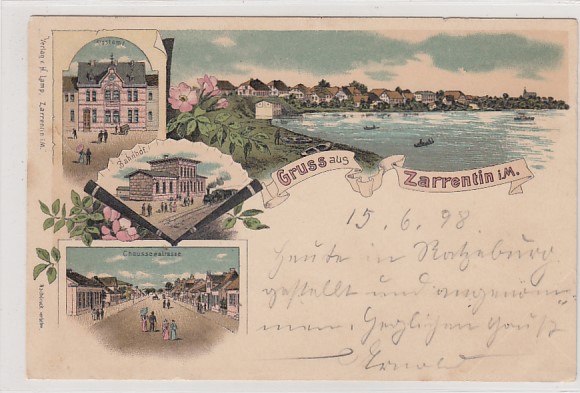 Postamt.
Bahnhof.
Gruss aus
Zarrentin i.M.
Chausseestrasse
Verlag v. H. Lamp, Zarrentin i.M.
15. 6. 98
Heute in Ratzeburg
gestellt und angenom-
men. Herzlichen Gruß
Ernst